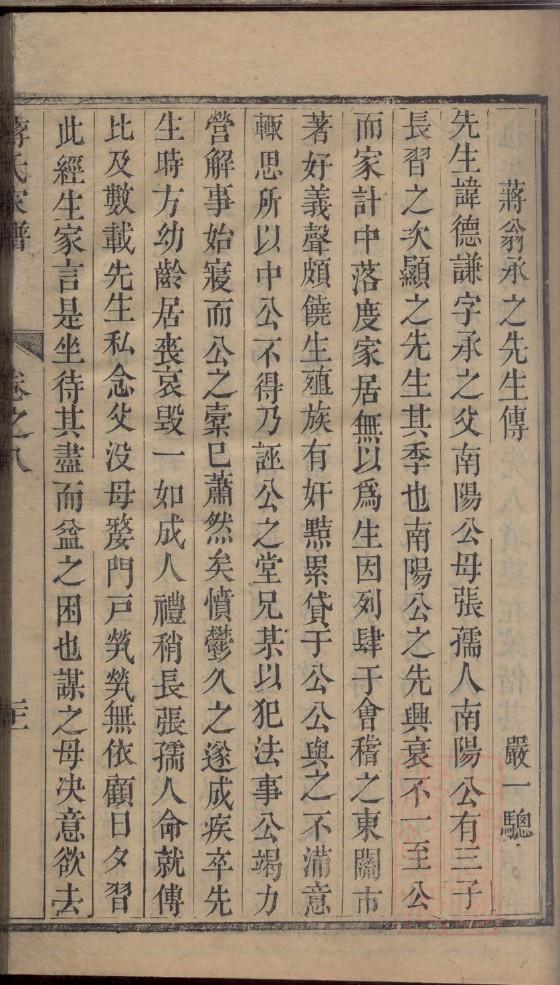 蔣翁承之先生傳　嚴一驄
先生諱德謙字承之父南陽公母張孺人南陽公有三子
長習之次顯之先生其季也南陽公之先興衰不一至公
而家計中落度家居無以爲生因列肆于會稽之東關市
著好義聲頗饒生殖族有奸黠累貸于公公與之不滿意
輙思所以中公不得乃誣公之堂兄某以犯法事公竭力
營解事始寢而公之橐已蕭然矣憤鬱久之遂成疾卒先
生時方幼齡居喪哀毀一如成人禮稍長張孺人命就傳
比及數載先生私念父没母嫠門戸煢煢無依顧日夕習
此經生家言是坐待其盡而益之困也謀之母决意欲去
蔣氏家譜　卷之八